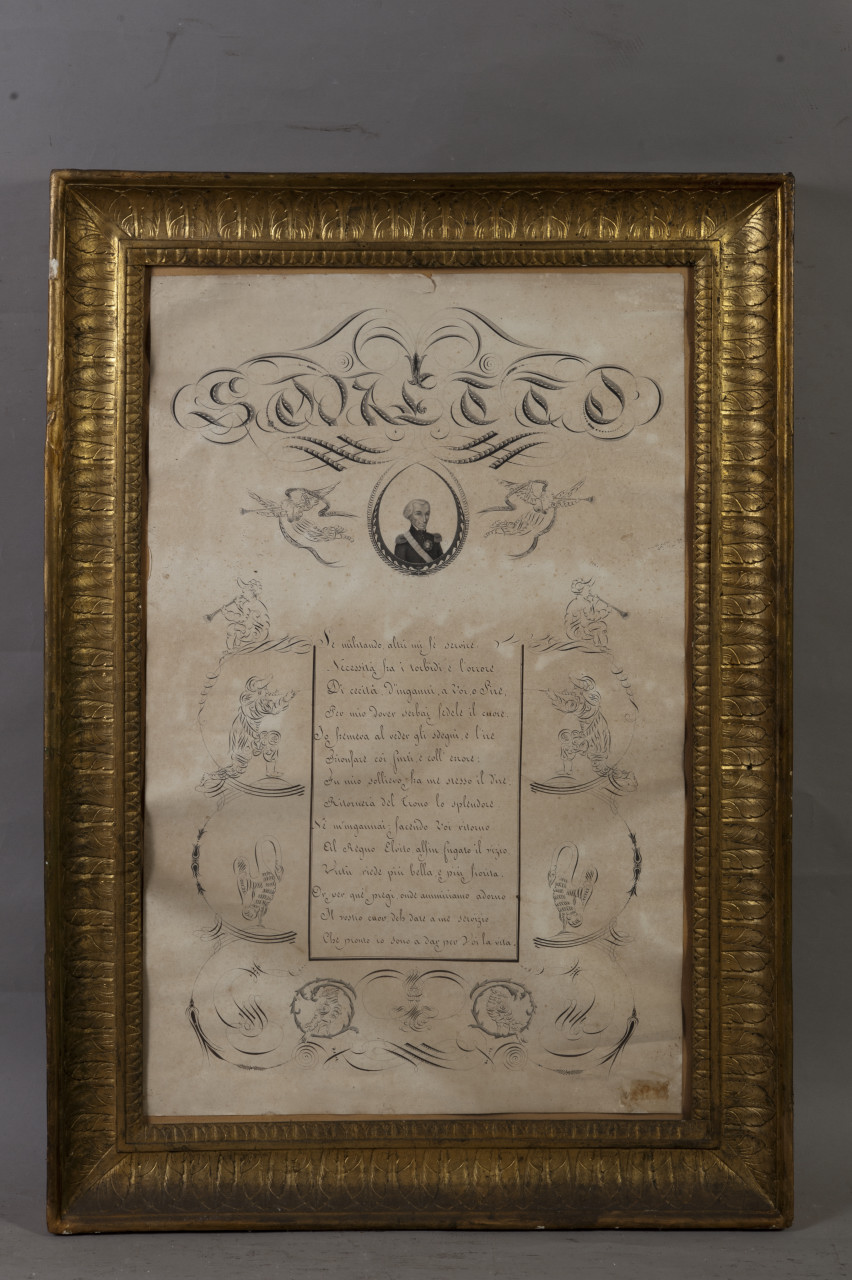 SONETTO
Se militando altri mi fe servire
Necessità fra i torbidi e l'orrore
Di cecità, d'inganni, a Voi o Sire,
Per mio dover serbai fedele il cuore
Io fremeva al veder gli sdegni, e l'ire
Trionfare coi finti, e coll'errore;
In mio sollievo fra me stesso il dire,
Ritornerà del Trono lo splendore
Nè m'ingannai; facendo Voi ritorno
Al Regno Vostro alfin fugato il vizio
Virtù riede più bella e più fiorita.
De ver que' pregi onde ammiriamo adorno
Il vostro cuor, deh date a me servizio
Che pronto io sono a dar per Voi la vita.